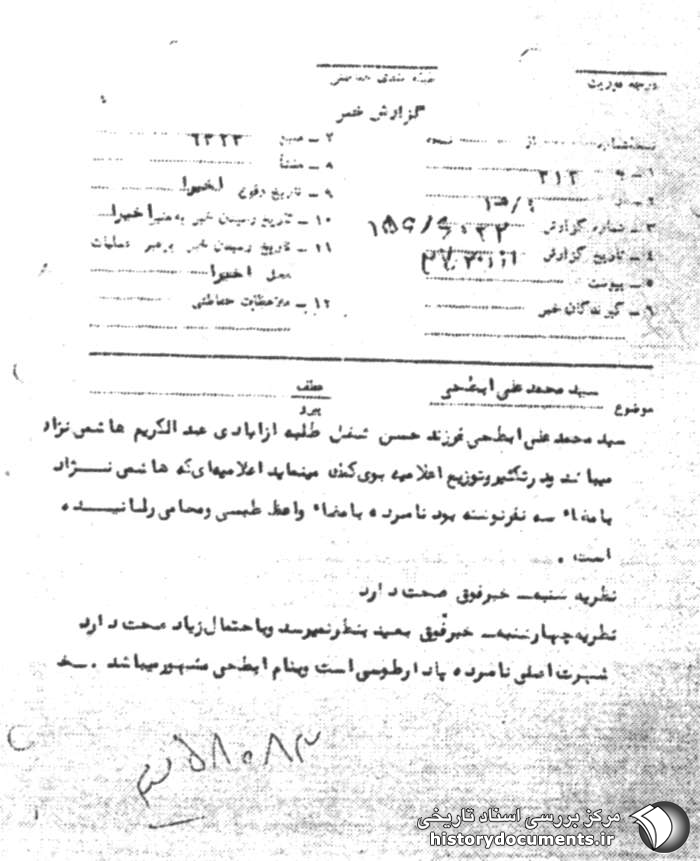 درجه فوریت
طبقه بندی حفاظتی
گزارش خبر
نسخه شماره از نسخه
۱ ــ به ۳۱۲
۲ ــ از
۳ ــ شماره گزارش
۴ ــ تاریخ گزارش
۵ ــ پیوست
۶ ــ گیرندگان خبر
۷ ــ منبع ۶۳۲۳
۸ ــ منشأ
۹ ــ تاریخ وقوع اخیرا
۱۰ ــ تاریخ رسیدن خبر به منبع اخیرا
۱۱ ــ تاریخ رسیدن خبر برهبر عملیات
محل اخیرا
۱۲ ــ ملاحظات حفاظتی
موضوع سید محمد علی ابطحی
عطف
پیرو
سید محمد علی ابطحی فرزند حسن شغل طلبه ازایادی عبدالکریم هاشمی نژاد
میباشد ودرتکثیر وتوزیع اعلامیه بوی کمک مینماید اعلامیه‌ای که هاشمی نـــژاد
بامضاء سه نفرنوشته بود نامبرده بامضاء واعظ طبسی ومحامی رسانیـــده
است .
نظریه شنبه ــ خبرفوق صحت دارد
نظریه چهارشنبه ــ خبرفوق بعید بنظر نمیرسد وباحتمال زیاد صحت دارد
شهرت اصلی نامبرده پادارطوسی است وبنام ابطحی مشهور میباشد .
۳۵۸۰۸۲
مرکز بررسی اسناد تاریخی
historydocuments.ir